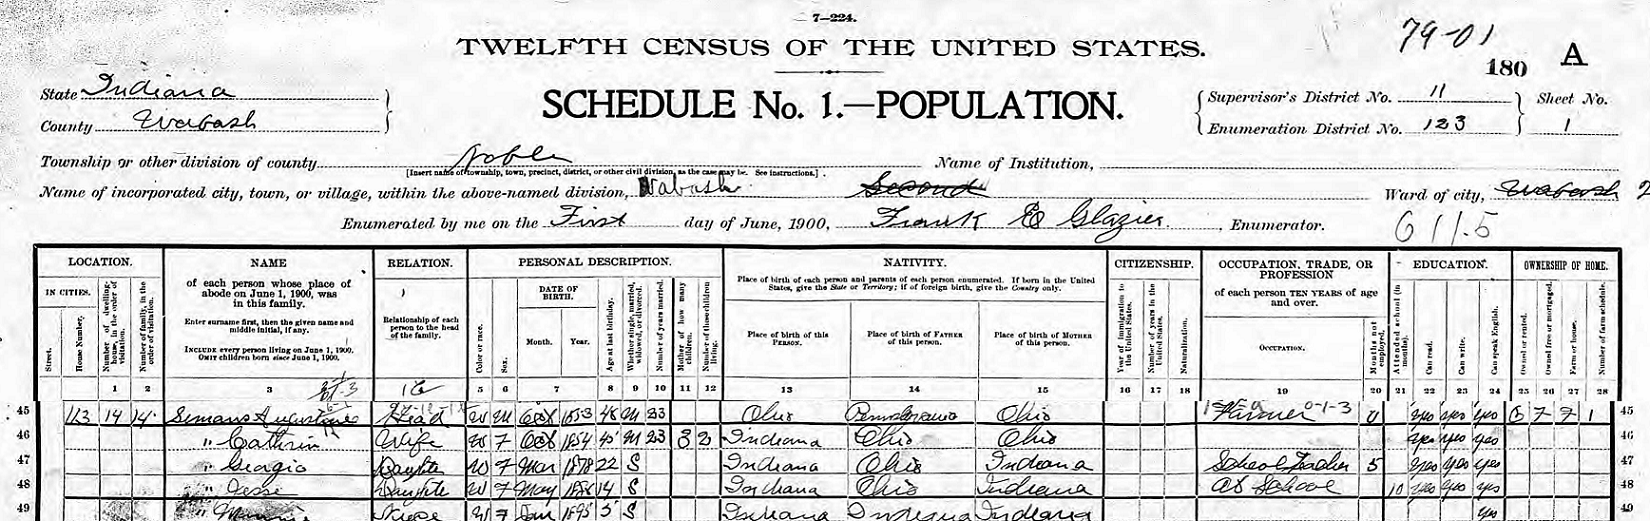 7—224.
79-01
TWELFTH CENSUS OF THE UNITED STATES.
180 A
State Indiana
County Wabash
SCHEDULE No. 1.—POPULATION.
Supervisor's District No. 11
Enumeration District No. 123
Sheet No.
1
Township or other division of county Noble
[Insert name of township, town, precinct, district, or other civil division, as the case may be. See instructions.]
Name of Institution,
Name of incorporated city, town, or village, within the above-named division, Wabash Second Ward of city, Wabash 2
Enumerated by me on the First day of June, 1900, Frank E Glazier, Enumerator.
611.5
LOCATION.
IN CITIES.
Street.
House Number.
Number of dwelling-house, in the order of visitation.
Number of family, in the order of visitation.
NAME
of each person whose place of abode on June 1, 1900, was in this family.
Enter surname first, then the given name and middle initial, if any.
INCLUDE every person living on June 1, 1900.
OMIT children born since June 1, 1900.
RELATION.
Relationship of each person to the head of the family.
PERSONAL DESCRIPTION.
Color or race.
Sex.
DATE OF BIRTH.
Month. Year.
Age at last birthday.
Whether single, married, widowed, or divorced.
Number of years married.
Mother of how many children.
Number of these children living.
NATIVITY.
Place of birth of each person and parents of each person enumerated. If born in the United States, give the State or Territory; if of foreign birth, give the Country only.
Place of birth of this PERSON.
Place of birth of FATHER of this person.
Place of birth of MOTHER of this person.
CITIZENSHIP.
Year of immigration to the United States.
Number of years in the United States.
Naturalization.
OCCUPATION, TRADE, OR PROFESSION
of each person TEN YEARS of age and over.
OCCUPATION.
Months not employed.
EDUCATION.
Attended school (in months).
Can read.
Can write.
Can speak English.
OWNERSHIP OF HOME.
Owned or rented.
Owned free or mortgaged.
Farm or house.
Number of farm schedule.
1 2 3 4 5 6 7 8 9 10 11 12 13 14 15 16 17 18 19 20 21 22 23 24 25 26 27 28
45 113 14 14 Semans Augustine Head W M Oct 1853 46 M 23 Ohio Pennsylvania Ohio Farmer 0-1-3 0 yes yes yes O F F 1 45
46 " Cathrin Wife W F Oct 1854 45 M 23 3 2 Indiana Ohio Ohio yes yes yes 46
47 " Georgia Daughter W F Mar 1878 22 S Indiana Ohio Indiana School Teacher 5 yes yes yes 47
48 " Jesse Daughter W F May 1886 14 S Indiana Ohio Indiana At School 10 yes yes yes 48
49 " Niece W F Jan 1895 5 S Indiana Indiana Indiana yes 49